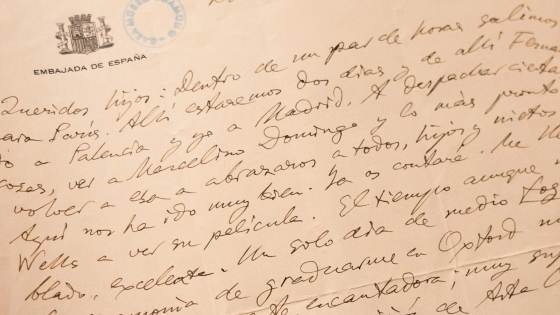 EMBAJADA DE ESPAÑA
Queridos hijos: Dentro de un par de horas salimos
para París. Allí estaremos dos días y de allí
a Palencia y yo a Madrid. A despachar
cosas, ver a Marcelino Domingo y lo más pronto
volver a esa a abrazaros a todos, hijos y nietos
Aquí nos ha ido muy bien. Ya os contaré.
Wells a ver su película. El tiempo aunque
blado, excelente. Un solo día de medio
de graduarme en Oxford
encantadora; muy
de Arte